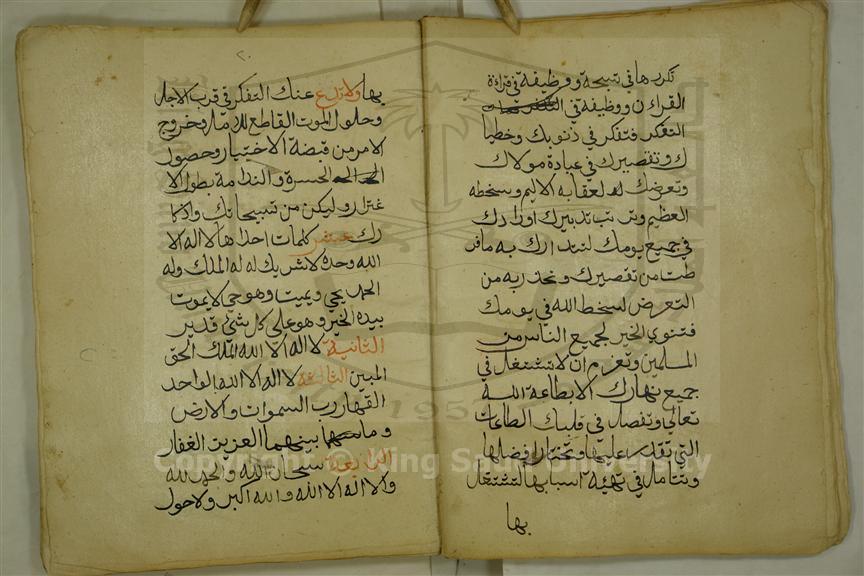 تكررها في سبحة ووظيفة في قراءة
القران ووظيفة في التفكر
التفكر فتفكر في ذنوبك وخطايا
ك وتقصيرك في عبادة مولاك
وتعرضك لعقابه الاليم وسخطه
العظيم وترتب بتدبيرك اورادك
في جميع يومك لتتدارك به مافر
طت من تقصيرك وتحذر به من
التعرض لسخط الله في يومك
فتنوي الخير لجميع الناس من
المسلمين وتعزم ان لا تشتغل في
جميع نهارك الا بطاعة الله
تعالى وتفصل في قلبك الطاعات
التي تقدر عليها وتختار افضلها
وتتامل في تهيئة اسبابها لتشتغل
بها
٢٠
بها ولا تدع عنك التفكر في قرب الاجل
وحلول الموت القاطع للامل وخروج
الامر من قبضة الاختيار وحصول
الحسرة والندامة بطول الا
غترار وليكن من تسبيحاتك واذكا
رك عشر كلمات احداها لا اله الا
الله وحده لا شريك له له الملك وله
الحمد يحي ويميت وهو حي لا يموت
بيده الخير وهو على كل شئ قدير
الثانية لا اله الا الله الملك الحق
المبين الثالثة لا اله الا الله الواحد
القهار رب السموات والارض
وما بينهما العزيز الغفار
الرابعة سبحان الله والحمد لله
ولا اله الا الله والله اكبر ولا حول
Copyright © King Saud University
1957